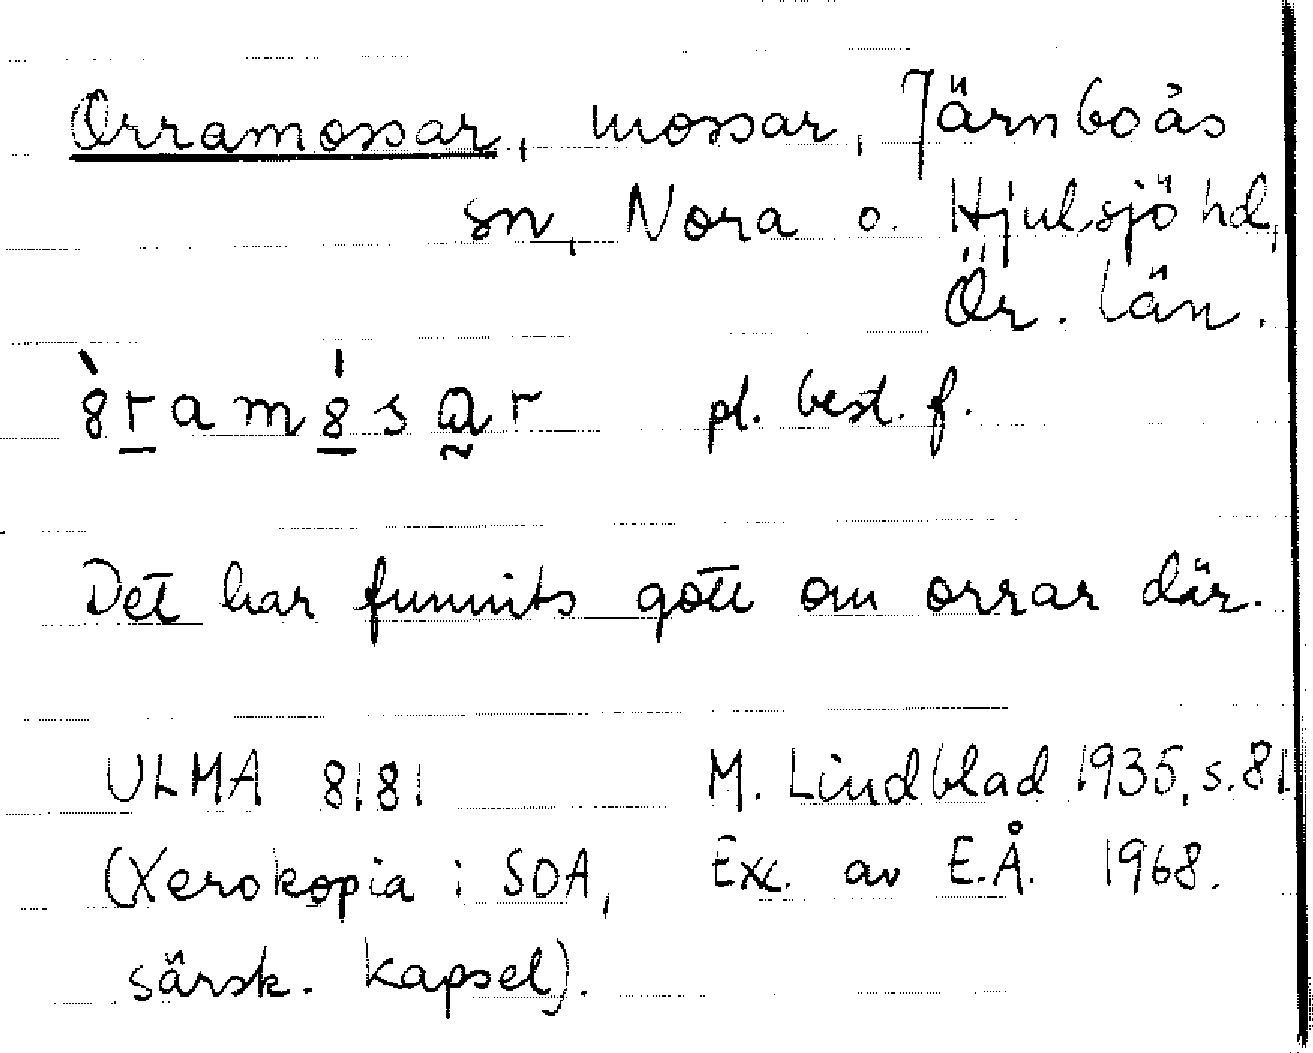 Orramossar, mossar, Järnboås
sn, Nora o. Hjulsjö hd,
Ör. län.
pl. best. f.
Det har funnits gott om orrar där.
ULMA 8181 M. Lindblad 1935, s. 81
(Xerokopia i SOA, Exc. av E.Å. 1968.
särsk. kapsel).